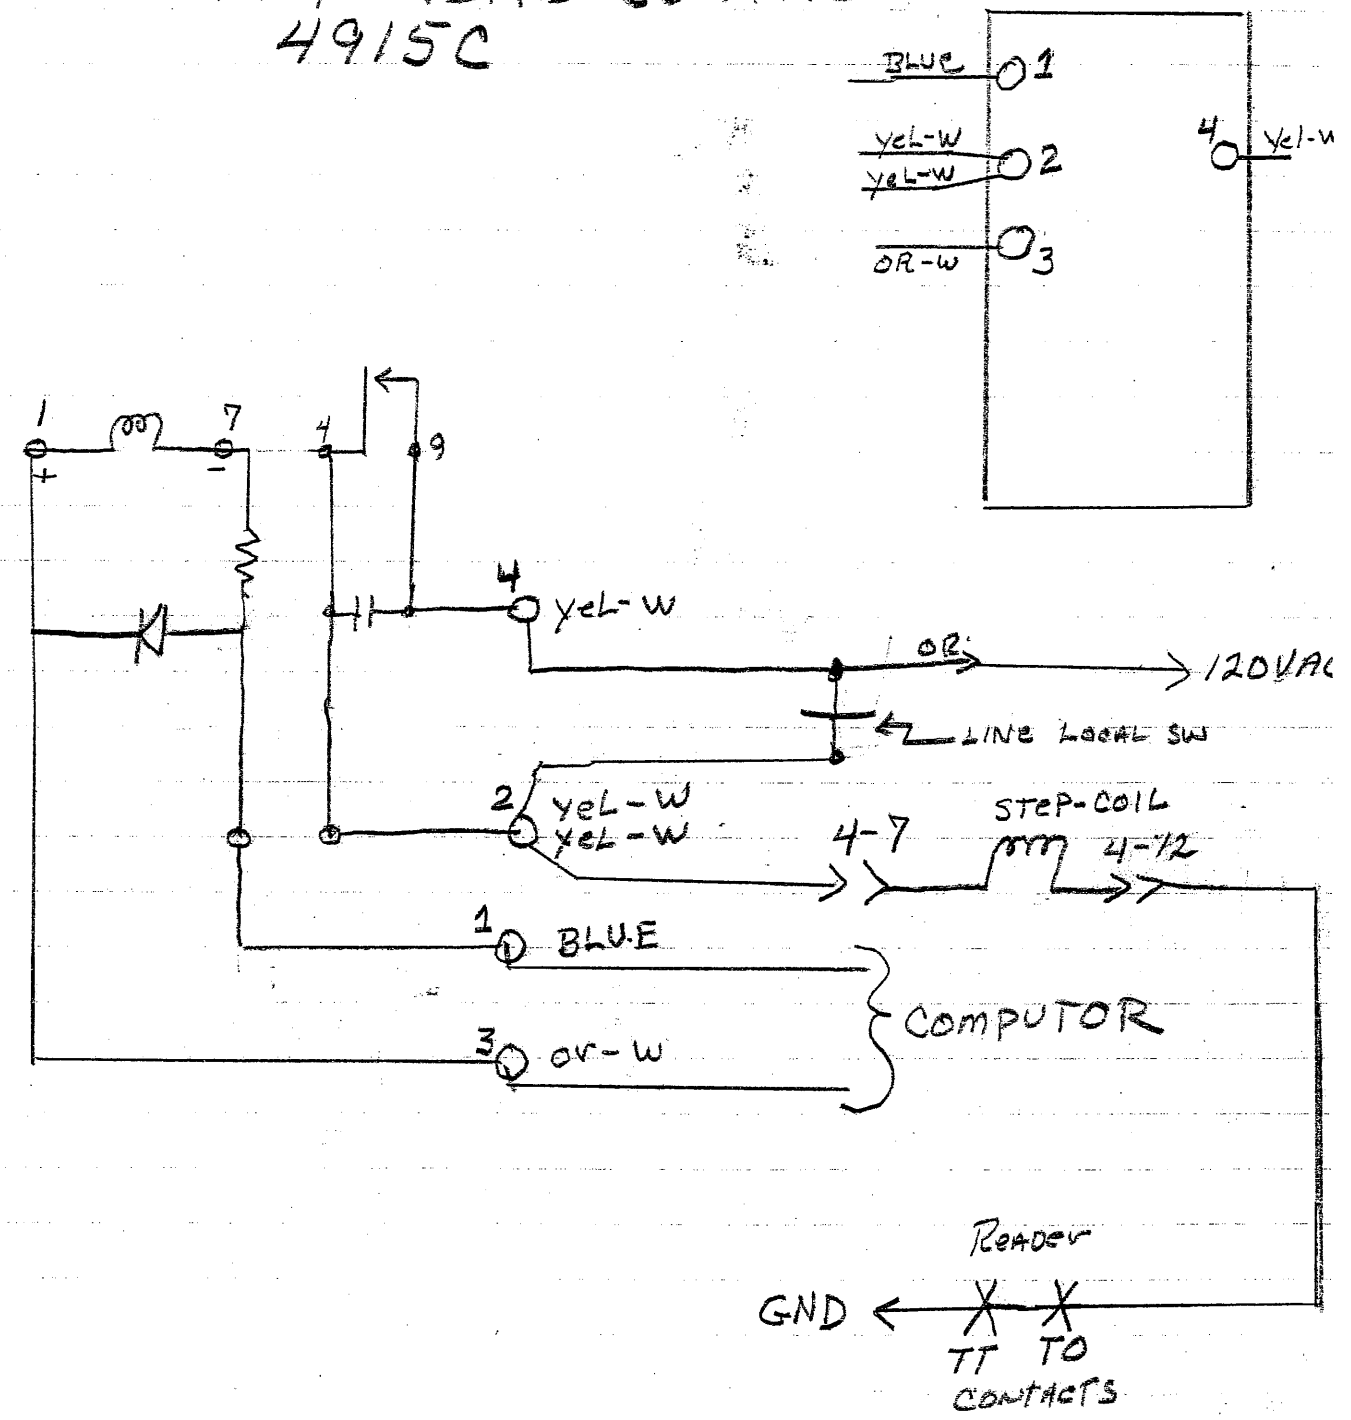 4915C
BLUE 1
YeL-W
YeL-W 2
OR-W 3
4 Yel-W
1 7 4 9
+ -
4 YeL-W
OR.
120VAC
LINE LOCAL SW
2 YeL-W
YeL-W
4-7
STEP-COIL
4-12
1 BLUE
COMPUTOR
3 or-W
Reader
GND
TT TO
CONTACTS